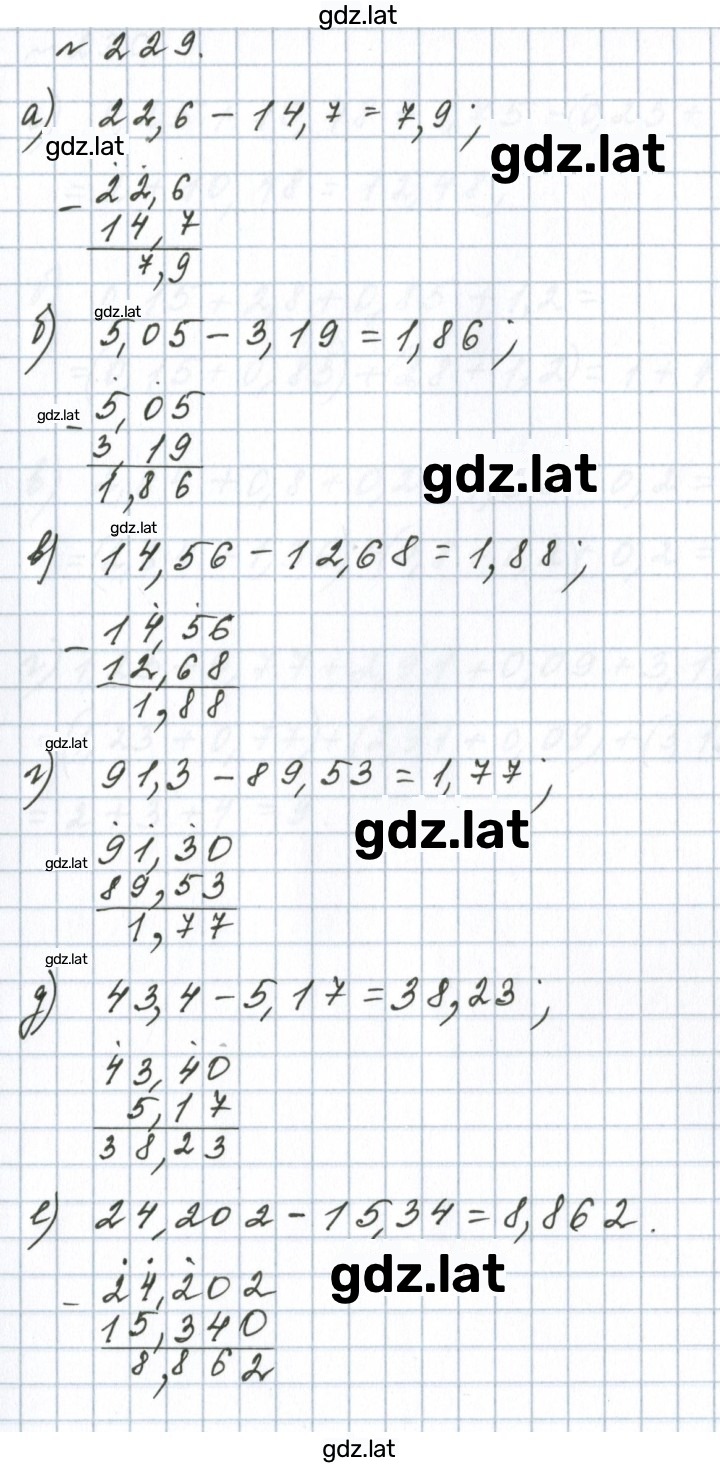 gdz.lat
№ 229.
а) 22,6 - 14,7 = 7,9;
gdz.lat
gdz.lat
- 22,6
14,7
7,9
gdz.lat
б) 5,05 - 3,19 = 1,86;
gdz.lat
- 5,05
3,19
1,86
gdz.lat
gdz.lat
в) 14,56 - 12,68 = 1,88;
- 14,56
12,68
1,88
gdz.lat
г) 91,3 - 89,53 = 1,77;
gdz.lat
gdz.lat
91,30
89,53
1,77
gdz.lat
д) 43,4 - 5,17 = 38,23;
43,40
5,17
38,23
е) 24,202 - 15,34 = 8,862.
gdz.lat
- 24,202
15,340
8,862
gdz.lat